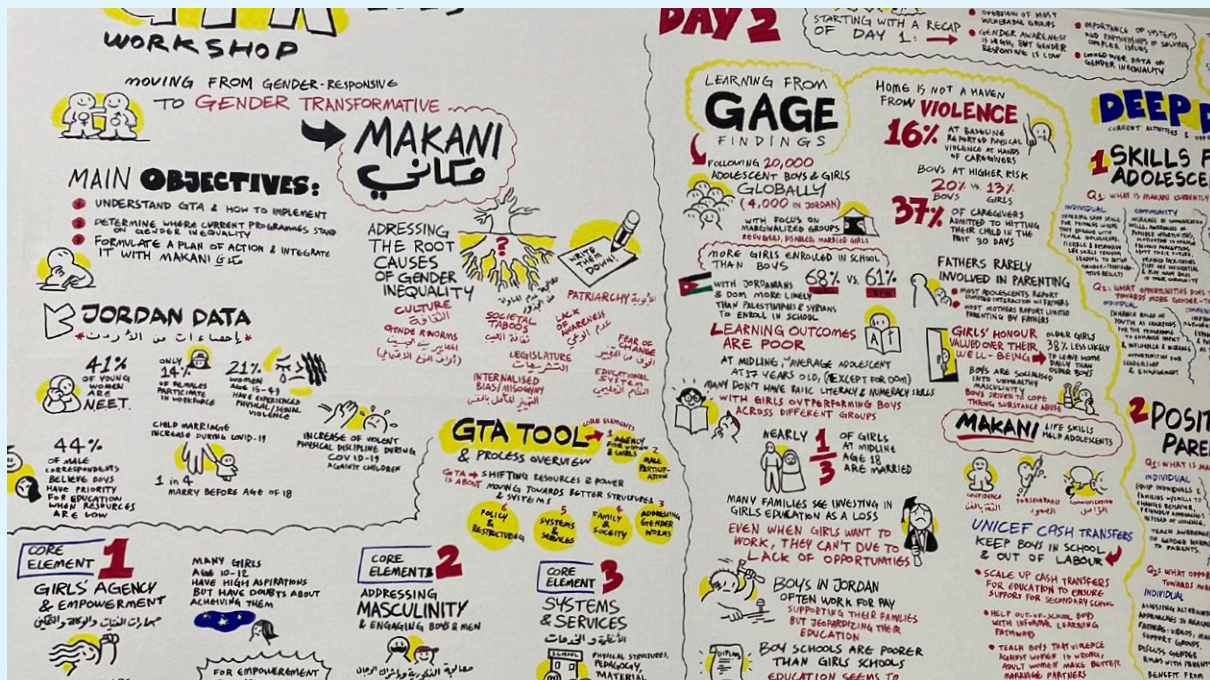 WORKSHOP
MOVING FROM GENDER-RESPONSIVE
TO GENDER TRANSFORMATIVE
MAKANI
مكاني
MAIN OBJECTIVES:
1 UNDERSTAND GTA & HOW TO IMPLEMENT
2 DETERMINE WHERE CURRENT PROGRAMMES STAND
ON GENDER INEQUALITY
3 FORMULATE A PLAN OF ACTION & INTEGRATE
IT WITH MAKANI مكاني
JORDAN DATA
*إحصاءات من الأردن*
41%
OF YOUNG
WOMEN
ARE
NEET.
ONLY
14%
OF FEMALES
PARTICIPATE
IN WORKFORCE
21%
WOMEN
AGE 15-49
HAVE EXPERIENCED
PHYSICAL/SEXUAL
VIOLENCE
44%
OF MALE
CORRESPONDENTS
BELIEVE BOYS
HAVE PRIORITY
FOR EDUCATION
WHEN RESOURCES
ARE LOW
CHILD MARRIAGE
INCREASE DURING COVID-19
1 in 4
MARRY BEFORE AGE OF 18
INCREASE OF VIOLENT
PHYSICAL DISCIPLINE DURING
COVID-19
AGAINST CHILDREN
ADRESSING
THE ROOT
CAUSES
OF GENDER
INEQUALITY
?
WRITE
THEM
DOWN!
CULTURE
الثقافة
GENDER NORMS
SOCIETAL
TABOOS
ثقافة العيب
LACK
OF
AWARENESS
عدم الوعي
PATRIARCHY الأبوية
FEAR OF
CHANGE
الخوف من التغيير
LEGISLATURE
التشريعات
INTERNALISED
BIAS/MISOGYNY
EDUCATIONAL
SYSTEM
النظام التعليمي
GTA TOOL
& PROCESS OVERVIEW
CORE ELEMENTS
1 AGENCY
FOR WOMEN
& GIRLS
2
MALE
PARTICIP-
ATION
GTA → SHIFTING RESOURCES & POWER
IS ABOUT MOVING TOWARDS BETTER STRUCTURES
& SYSTEMS
3
ADDRESSING
GENDER
NORMS
4
FAMILY
&
SOCIETY
5
SYSTEMS
&
SERVICES
6
POLICY
&
RESTRUCTURING
CORE
ELEMENT 1
GIRLS' AGENCY
& EMPOWERMENT
MANY GIRLS
AGE 10-12
HAVE HIGH ASPIRATIONS
BUT HAVE DOUBTS ABOUT
ACHEIVING THEM
FOR EMPOWEREMENT
CORE
ELEMENTS 2
ADDRESSING
MASCULINITY
& ENGAGING BOYS & MEN
CORE
ELEMENT 3
SYSTEMS
& SERVICES
الأنظمة و الخدمات
SCHOOL
PHYSICAL STRUCTURES,
PEDAGOGY,
MATERIAL
DAY 2
STARTING WITH A RECAP
OF DAY 1:
OVERVIEW OF MOST
VULNERABLE GROUPS
GENDER AWARENESS
IS HIGH, BUT GENDER
RESPONSIVE IS LOW
IMPORTANCE OF SYSTEMS
AND PARTNERSHIPS IN SOLVING
COMPLEX ISSUES
LOOKED OVER DATA ON
GENDER INEQUALITY
LEARNING FROM
GAGE
FINDINGS
FOLLOWING 20,000
ADOLESCENT BOYS & GIRLS
GLOBALLY
(4,000 IN JORDAN)
WITH FOCUS ON
MARGINALIZED GROUPS
REFUGEES, DISABLED, MARRIED GIRLS
MORE GIRLS ENROLLED IN SCHOOL
THAN BOYS
68% VS. 61%
WITH JORDANIANS
& DOM MORE LIKELY
THAN PALESTINIANS & SYRIANS
TO ENROLL IN SCHOOL
LEARNING OUTCOMES
ARE POOR
AT MIDLINE, "AVERAGE ADOLESCENT
AT 17 YEARS OLD, (EXCEPT FOR DOM)
MANY DON'T HAVE BASIC LITERACY & NUMERACY SKILLS
WITH GIRLS OUTPERFORMING BOYS
ACROSS DIFFERENT GROUPS
NEARLY 1/3 OF GIRLS
AT MIDLINE
AGE 18
ARE MARRIED
MANY FAMILIES SEE INVESTING IN
GIRLS EDUCATION AS A LOSS
EVEN WHEN GIRLS WANT TO
WORK, THEY CAN'T DUE TO
LACK OF OPPORTUNITIES
BOYS IN JORDAN
OFTEN WORK FOR PAY
SUPPORTING THEIR FAMILIES
BUT JEOPARDIZING THEIR
EDUCATION
DIPLOMA
BOY SCHOOLS ARE POORER
THAN GIRLS SCHOOLS
EDUCATION SEEMS TO
HOME IS NOT A HAVEN
FROM VIOLENCE
16% AT BASELINE
REPORTED PHYSICAL
VIOLENCE AT HANDS
OF CAREGIVERS
BOYS AT HIGHER RISK
20% VS. 13%
BOYS GIRLS
37% OF CAREGIVERS
ADMITTED TO HITTING
THEIR CHILD IN THE
PAST 30 DAYS
FATHERS RARELY
INVOLVED IN PARENTING
MOST ADOLESCENTS REPORT
LIMITED INTERACTION W/ FATHERS
MOST MOTHERS REPORT LIMITED
PARENTING BY FATHERS
GIRLS' HONOUR
VALUED OVER THEIR
WELL-BEING
OLDER GIRLS
38% LESS LIKELY
TO LEAVE HOME
DAILY THAN
OLDER BOYS
BOYS ARE SOCIALISED
INTO UNHEALTHY
MASCULINITY
BOYS DRIVEN TO COPE
THROUG SUBSTANCE ABUSE
MAKANI LIFE SKILLS
HELP ADOLESCENTS
CONFIDENCE
COMMUNICATION
UNICEF CASH TRANSFERS
KEEP BOYS IN SCHOOL
& OUT OF LABOUR
SCALE UP CASH TRANSFERS
FOR EDUCATION TO ENSURE
SUPPORT FOR SECONDARY SCHOOL
HELP OUT-OF-SCHOOL BOYS
WITH INFORMAL LEARNING
PATHWAYS
TEACH BOYS THAT VIOLENCE
AGAINST WOMEN IS WRONG,
ADULT WOMEN MAKE BETTER
MARRIAGE PARTNERS
DEEP
1 SKILLS
ADOLESCE
Q1: WHAT IS MAKANI CURRENTLY
INDIVIDUAL
COMMUNITY
Q2: WHAT OPPORTUNITIES DOES
TOWARDS MORE GENDER-T
INDIVIDUAL
2 POSIT
PARE
Q1: WHAT IS MA
INDIVIDUAL
Q2: WHAT OPPOR
TOWARDS MORE
INDIVIDUAL
BENEFIT FROM